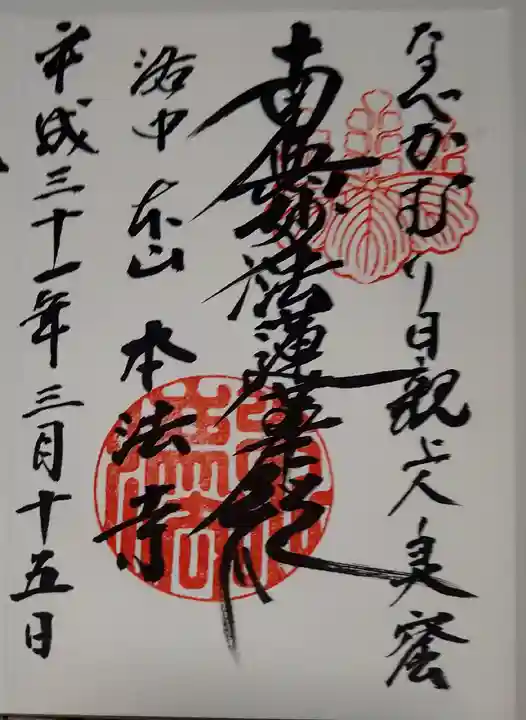 なべかむり日親上人真窟
南無妙法蓮華経
洛中 本山 本法寺
平成三十一年三月十五日